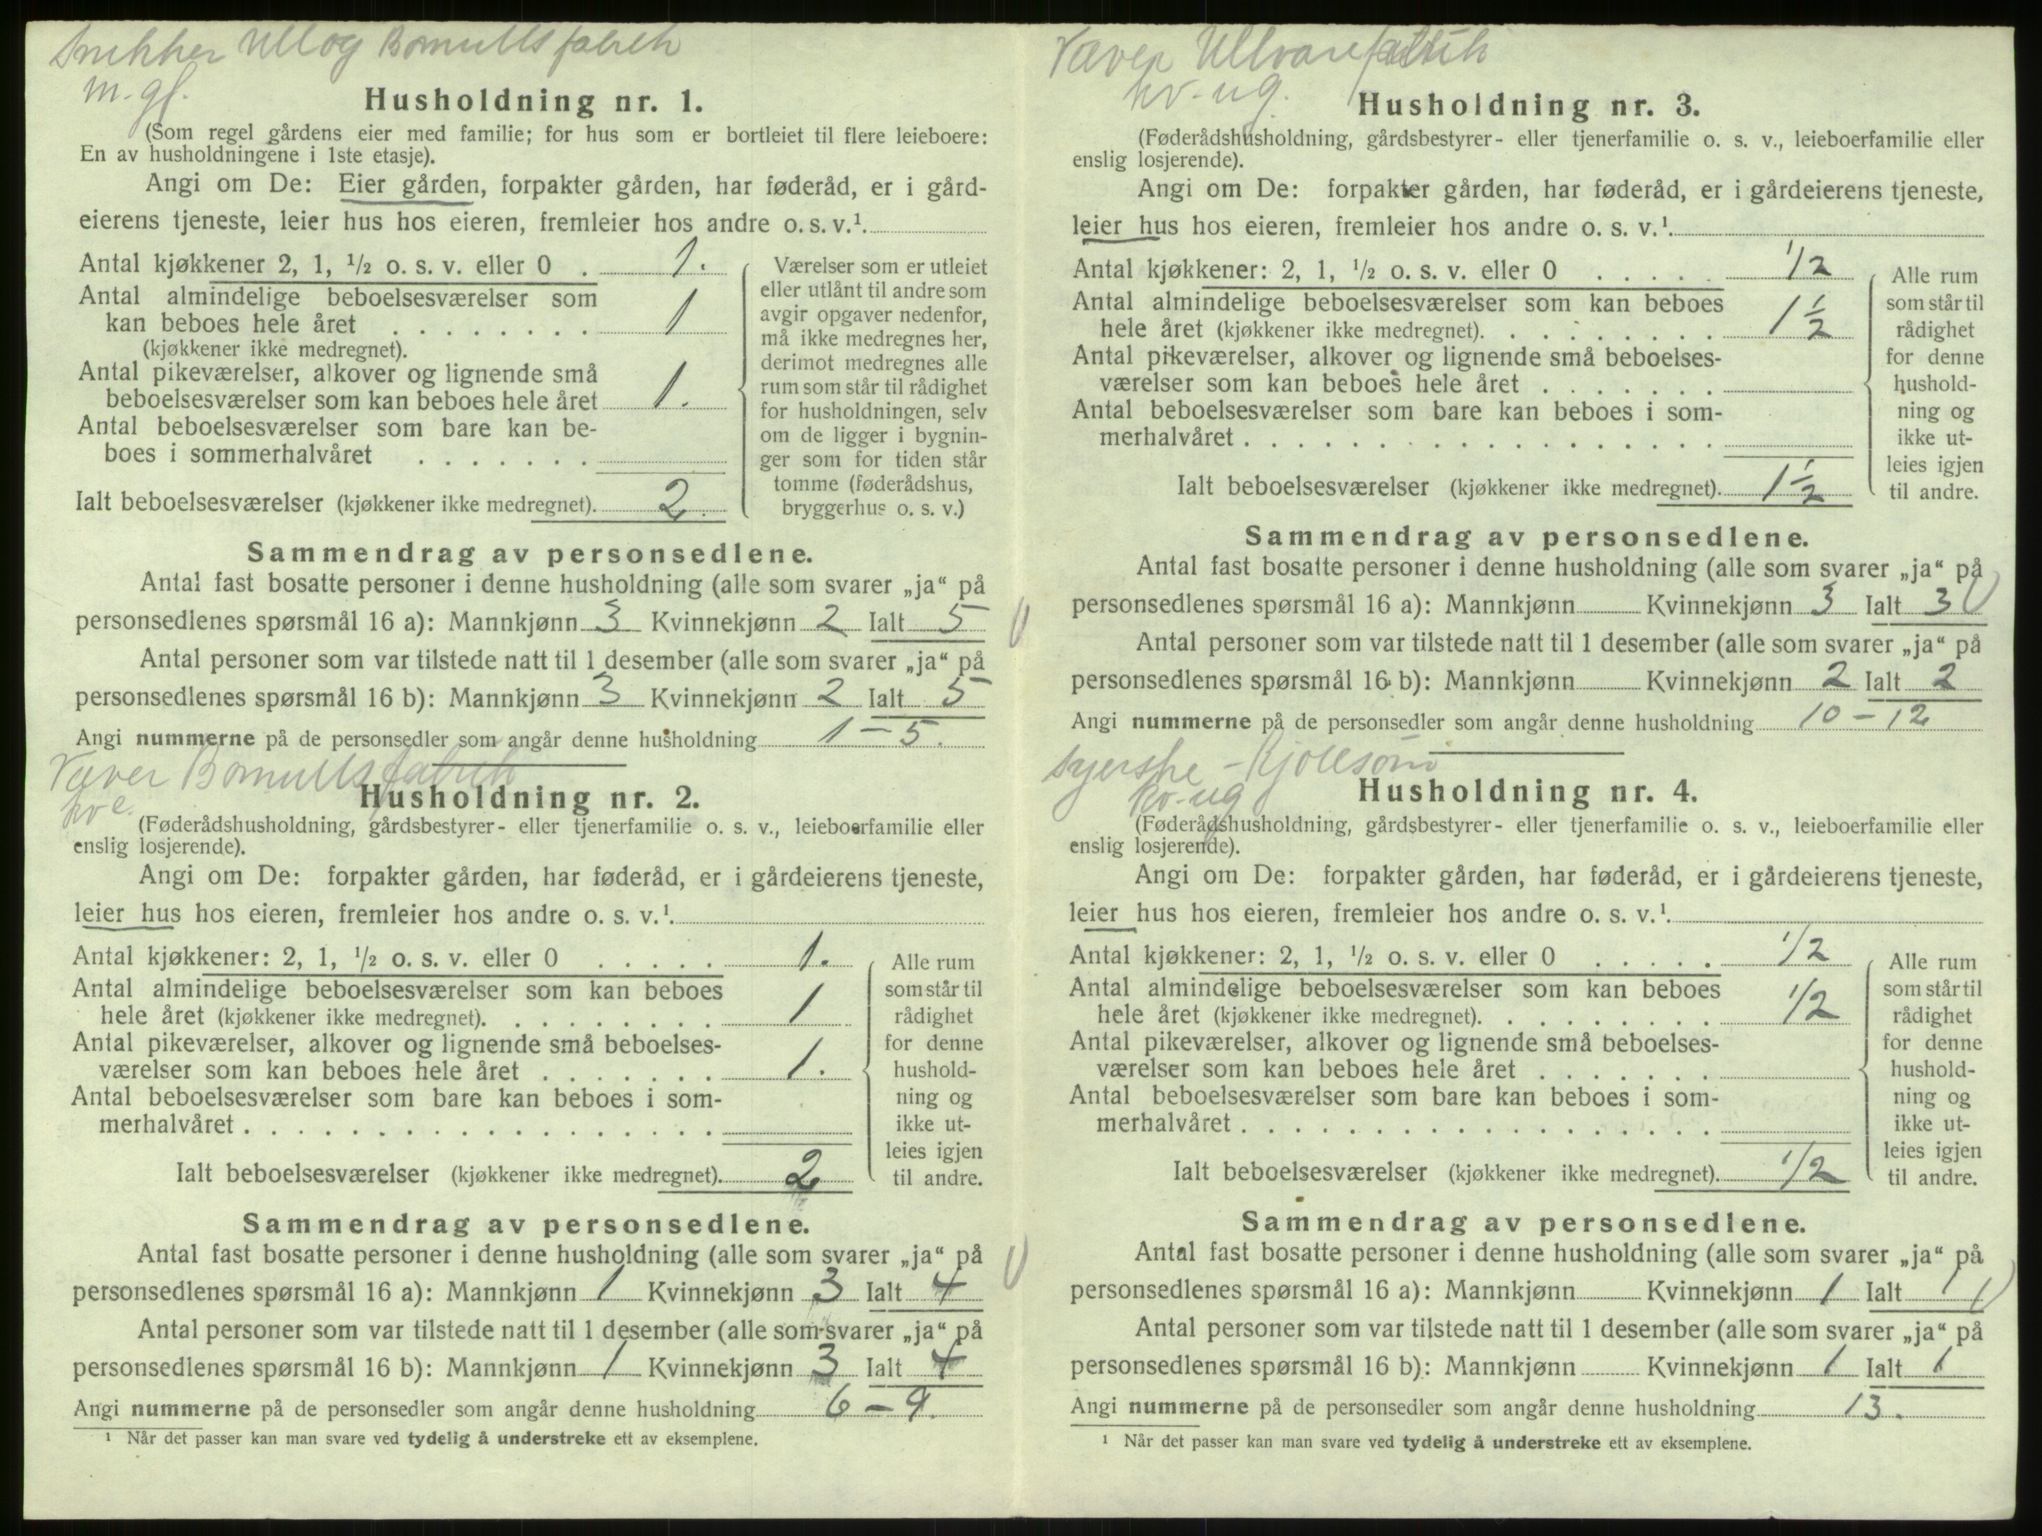 Snekker Ull og Bomullsfabrik
m. gf.
Husholdning nr. 1.
(Som regel gårdens eier med familie; for hus som er bortleiet til flere leieboere:
En av husholdningene i 1ste etasje).
Angi om De: Eier gården, forpakter gården, har føderåd, er i gård-
eierens tjeneste, leier hus hos eieren, fremleier hos andre o. s. v.¹.
Antal kjøkkener 2, 1, ½ o. s. v. eller 0 . 1.
Antal almindelige beboelsesværelser som
kan beboes hele året . . . . . . . . 1
(kjøkkener ikke medregnet).
Antal pikeværelser, alkover og lignende små
beboelsesværelser som kan beboes hele året 1.
Antal beboelsesværelser som bare kan be-
boes i sommerhalvåret . . . . . . .
Ialt beboelsesværelser (kjøkkener ikke medregnet). 2.
Værelser som er utleiet
eller utlånt til andre som
avgir opgaver nedenfor,
må ikke medregnes her,
derimot medregnes alle
rum som står til rådighet
for husholdningen, selv
om de ligger i bygnin-
ger som for tiden står
tomme (føderådshus,
bryggerhus o. s. v.)
Sammendrag av personsedlene.
Antal fast bosatte personer i denne husholdning (alle som svarer „ja“ på
personsedlenes spørsmål 16 a): Mannkjønn 3 Kvinnekjønn 2 Ialt 5
Antal personer som var tilstede natt til 1 desember (alle som svarer „ja“ på
personsedlenes spørsmål 16 b): Mannkjønn 3 Kvinnekjønn 2 Ialt 5
Angi nummerne på de personsedler som angår denne husholdning 1 – 5.
Væver Bomullsfabrik
kv e.
Husholdning nr. 2.
(Føderådshusholdning, gårdsbestyrer- eller tjenerfamilie o. s. v., leieboerfamilie eller
enslig losjerende).
Angi om De: forpakter gården, har føderåd, er i gårdeierens tjeneste,
leier hus hos eieren, fremleier hos andre o. s. v.¹.
Antal kjøkkener: 2, 1, ½ o. s. v. eller 0 . . . . . 1.
Antal almindelige beboelsesværelser som kan beboes
hele året (kjøkkener ikke medregnet). . . . . . . . . 1
Antal pikeværelser, alkover og lignende små beboelses-
værelser som kan beboes hele året . . . . . . . 1.
Antal beboelsesværelser som bare kan beboes i som-
merhalvåret . . . . . . . . . . . . . . . . . .
Ialt beboelsesværelser (kjøkkener ikke medregnet). 2
Alle rum
som står til
rådighet
for denne
hushold-
ning og
ikke ut-
leies igjen
til andre.
Sammendrag av personsedlene.
Antal fast bosatte personer i denne husholdning (alle som svarer „ja“ på
personsedlenes spørsmål 16 a): Mannkjønn 1 Kvinnekjønn 3 Ialt 4
Antal personer som var tilstede natt til 1 desember (alle som svarer „ja“ på
personsedlenes spørsmål 16 b): Mannkjønn 1 Kvinnekjønn 3 Ialt 4
Angi nummerne på de personsedler som angår denne husholdning 6 – 9.
¹ Når det passer kan man svare ved tydelig å understreke ett av eksemplene.
Væver Ullvarefabrik
kv-ug.
Husholdning nr. 3.
(Føderådshusholdning, gårdsbestyrer- eller tjenerfamilie o. s. v., leieboerfamilie eller
enslig losjerende).
Angi om De: forpakter gården, har føderåd, er i gårdeierens tjeneste,
leier hus hos eieren, fremleier hos andre o. s. v.¹.
Antal kjøkkener: 2, 1, ½ o. s. v. eller 0 . . . . . 1/2
Antal almindelige beboelsesværelser som kan beboes
hele året (kjøkkener ikke medregnet). . . . . . . . . 1 1/2
Antal pikeværelser, alkover og lignende små beboelses-
værelser som kan beboes hele året . . . . . . .
Antal beboelsesværelser som bare kan beboes i som-
merhalvåret . . . . . . . . . . . . . . . . . .
Ialt beboelsesværelser (kjøkkener ikke medregnet). 1 1/2
Alle rum
som står til
rådighet
for denne
hushold-
ning og
ikke ut-
leies igjen
til andre.
Sammendrag av personsedlene.
Antal fast bosatte personer i denne husholdning (alle som svarer „ja“ på
personsedlenes spørsmål 16 a): Mannkjønn Kvinnekjønn 3 Ialt 3
Antal personer som var tilstede natt til 1 desember (alle som svarer „ja“ på
personsedlenes spørsmål 16 b): Mannkjønn Kvinnekjønn 2 Ialt 2
Angi nummerne på de personsedler som angår denne husholdning 10 – 12
Syerske – Kjolesøm
kv-ug
Husholdning nr. 4.
(Føderådshusholdning, gårdsbestyrer- eller tjenerfamilie o. s. v., leieboerfamilie eller
enslig losjerende).
Angi om De: forpakter gården, har føderåd, er i gårdeierens tjeneste,
leier hus hos eieren, fremleier hos andre o. s. v.¹.
Antal kjøkkener: 2, 1, ½ o. s. v. eller 0 . . . . . 1/2
Antal almindelige beboelsesværelser som kan beboes
hele året (kjøkkener ikke medregnet). . . . . . . . . 1/2
Antal pikeværelser, alkover og lignende små beboelses-
værelser som kan beboes hele året . . . . . . .
Antal beboelsesværelser som bare kan beboes i som-
merhalvåret . . . . . . . . . . . . . . . . . .
Ialt beboelsesværelser (kjøkkener ikke medregnet). 1/2
Alle rum
som står til
rådighet
for denne
hushold-
ning og
ikke ut-
leies igjen
til andre.
Sammendrag av personsedlene.
Antal fast bosatte personer i denne husholdning (alle som svarer „ja“ på
personsedlenes spørsmål 16 a): Mannkjønn Kvinnekjønn 1 Ialt 1
Antal personer som var tilstede natt til 1 desember (alle som svarer „ja“ på
personsedlenes spørsmål 16 b): Mannkjønn Kvinnekjønn 1 Ialt 1
Angi nummerne på de personsedler som angår denne husholdning 13.
¹ Når det passer kan man svare ved tydelig å understreke ett av eksemplene.